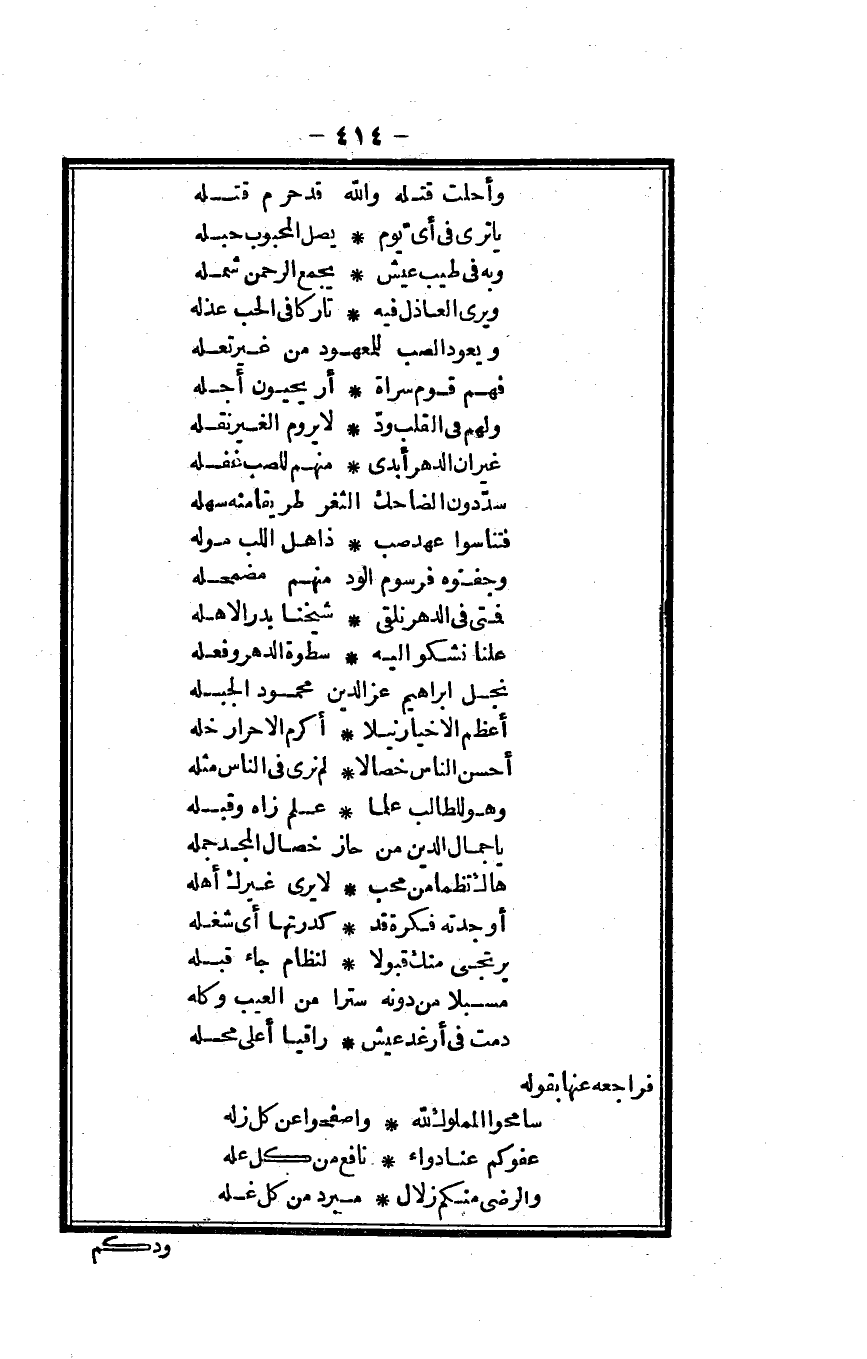 - ٤١٤ -
وأحلت قتله والله قد حرم قتله
ياترى فى أى يوم * يصل المحبوب حبله
وبه فى طيب عيش * يجمع الرحمن شمله
ويرى العاذل فيه * تاركا فى الحب عذله
ويعود الصب للمعهود من غير تعله
فهم قوم سراة * أريحيون أجله
ولهم فى القلب ودّ * لايروم الغير نقله
غير ان الدهر أبدى * منهم للصب غفله
سدّ دون الضاحك الثغر طريقا منه سهله
فتناسوا عهد صب * ذاهل اللب موله
وجفتوه فرسوم الود منهم مضمحله
فتى فى الدهر نلقى * شيخنا بدر الاهله
علنا نشكو اليه * سطوة الدهر وفعله
نجل ابراهيم عز الدين محمود الجبله
أعظم الاخيار نيلا * أكرم الاحرار خله
أحسن الناس خصالا * لم نرى فى الناس مثله
وهو للطالب علما * علم زاه وقبله
ياجمال الدين من حاز خصال المجد جمله
هاك نظما من محب * لايرى غيرك أهله
أوجدته فكرة قد * كدرتها أى شغله
يرتجى منك قبولا * لنظام جاء قبله
مسبلا من دونه سترا من العيب وكله
دمت فى أرغد عيش * راقيا أعلى محله
فراجعه عنها بقوله
سامحوا المملوك لله * واصفحوا عن كل زله
عفوكم عنا دواء * نافع من كل عله
والرضى منكم زلال * مبرد من كل غله
ودكم